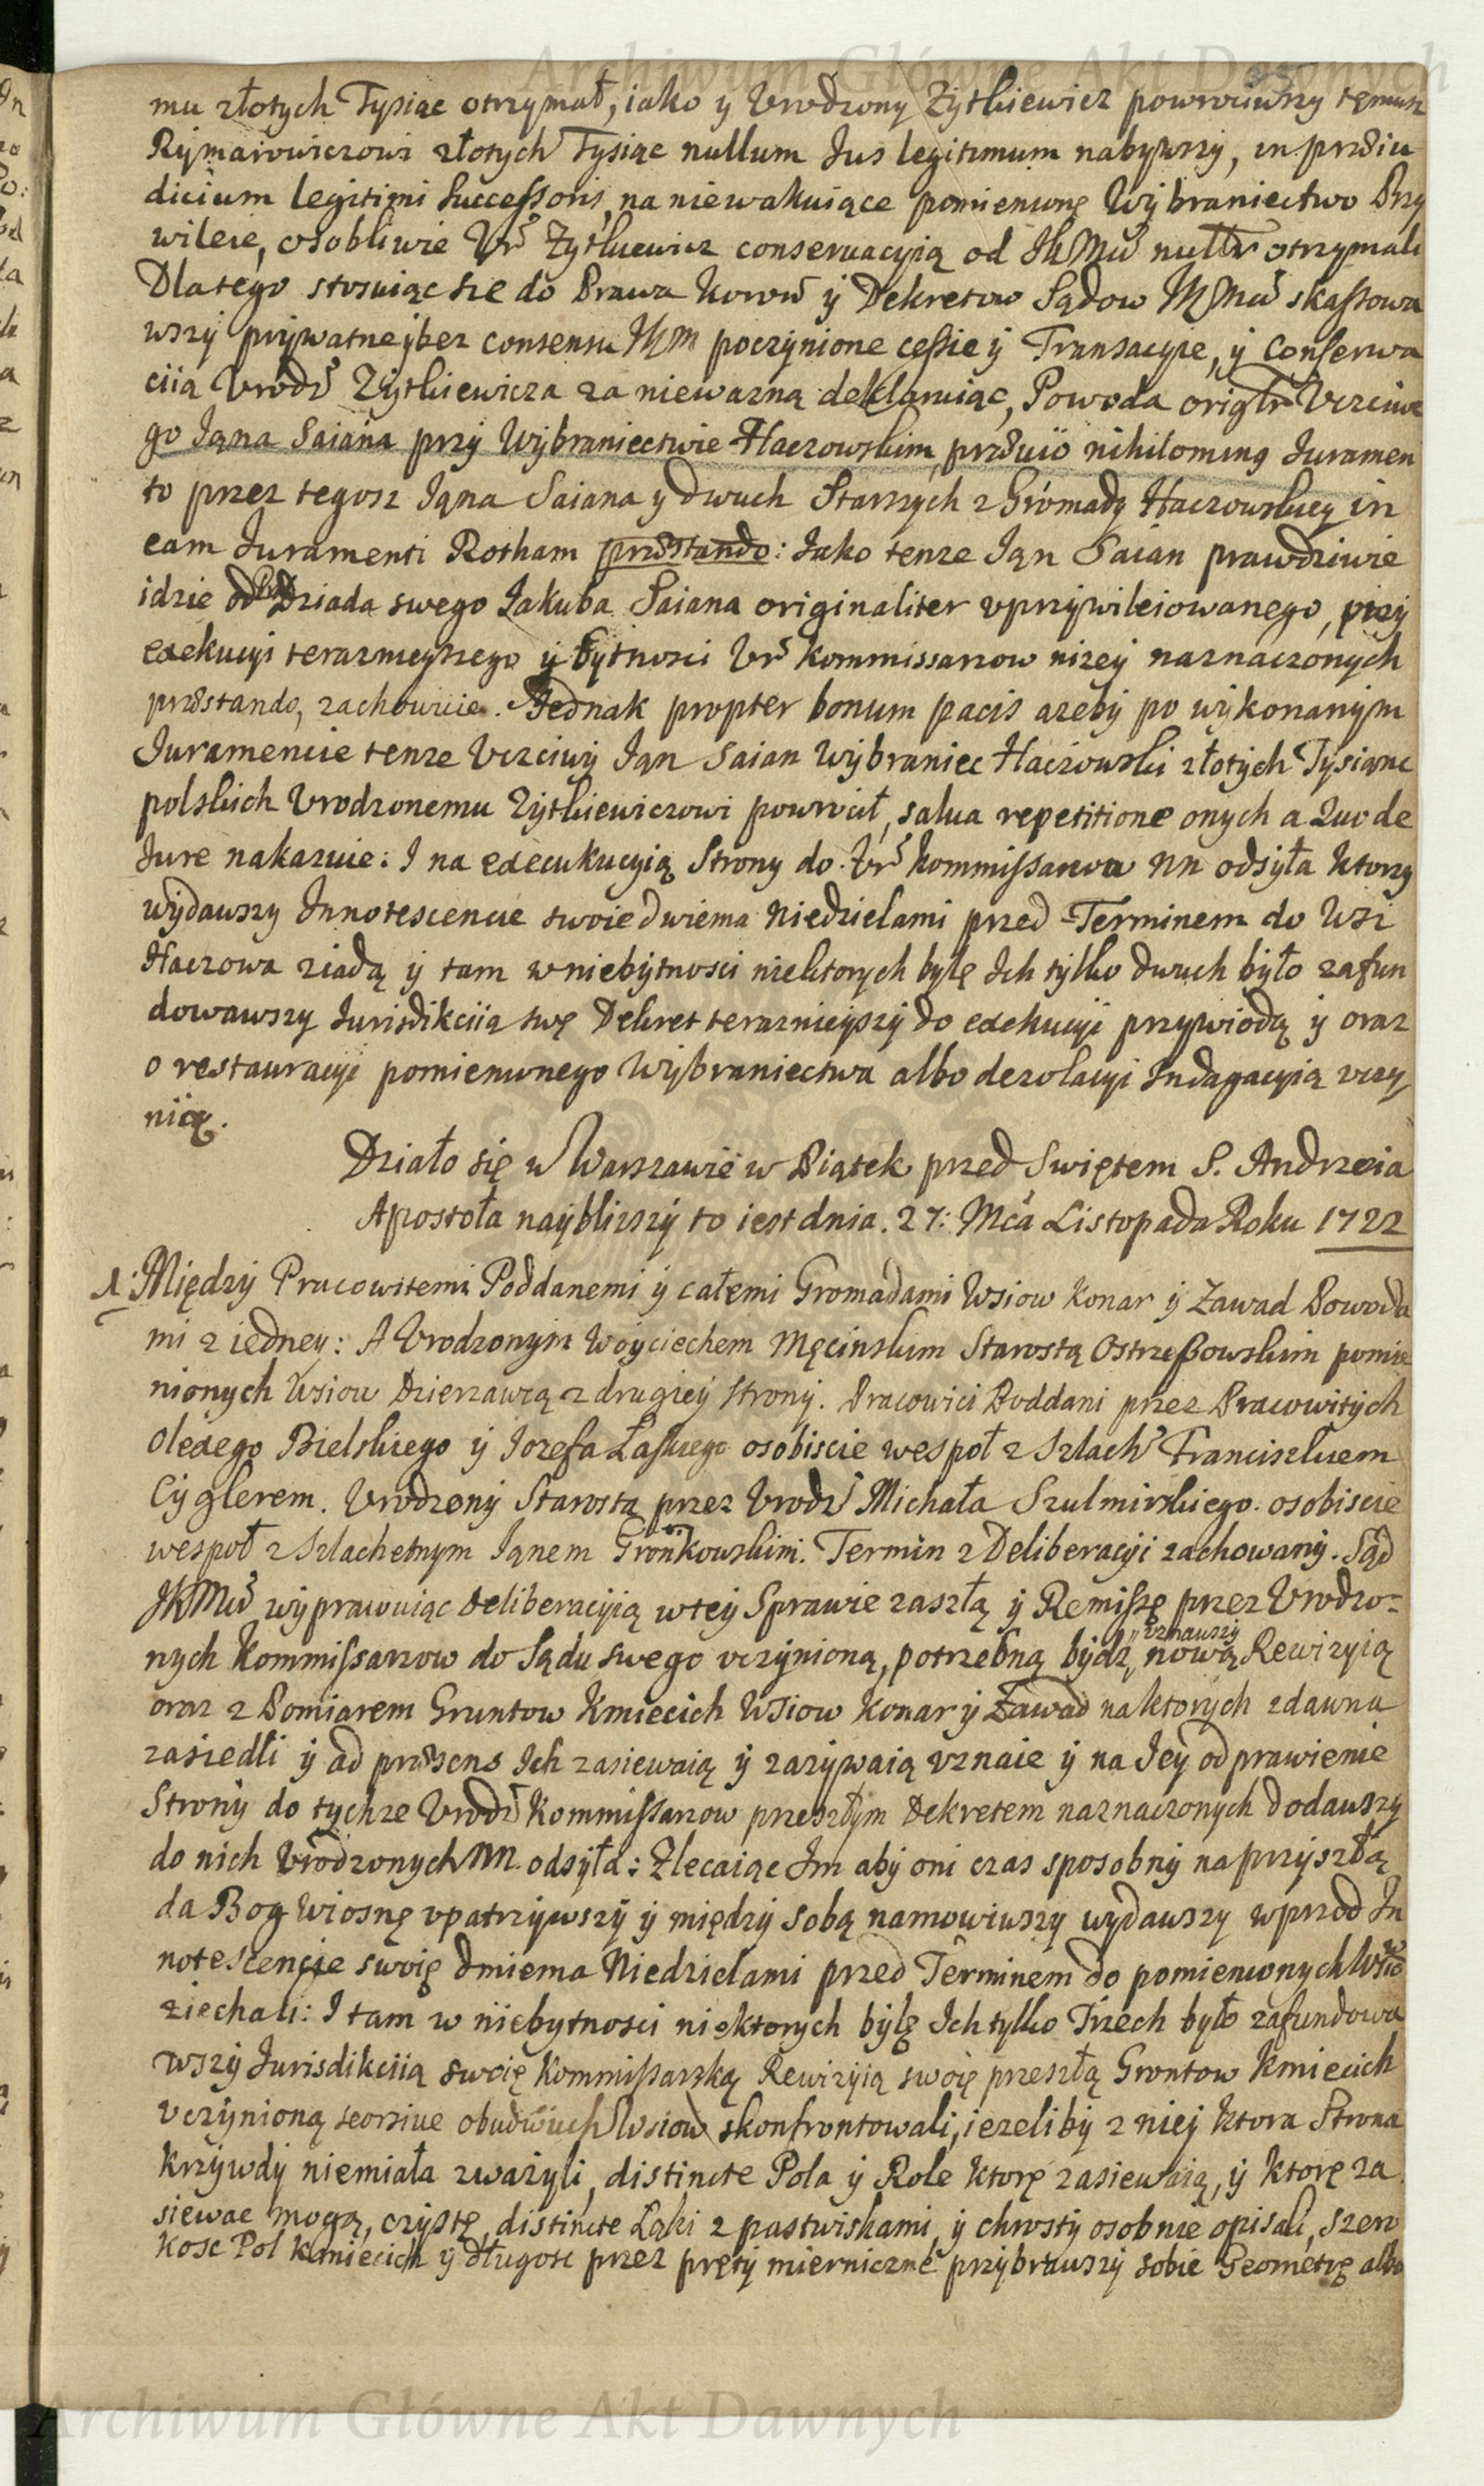 Archiwum Główne Akt Dawnych
mu złotych Tysiąc otrzymał, iako y Vrodzony Zytkiewicz powrociwszy temusz
Rymarowiczowi złotych Tysiąc nullum Jus legitimum nabywszy, in præiu
dicium legitimi Successoris, na niewakuiące pomienione Wybraniectwo Przy
wileie, osobliwie Vr Zytkiewicz conservacyią od JKMci otrzymali
Dlatego stosuiąc sie do Prawa Koron y Dekretow Sądow JKMci skassowa
wszy prywatne y bez consensu JKM poczynione cessie y Transacyie, y Conserwa
ciią Vrodz Zytkiewicza za niewazną deklaruiąc, Powoda origlr Vczciwe
go Jąna Saiana przy Wybraniectwie Haczowskim, præuio nihiloming Juramen
to przez tegosz Jąna Saiana y dwuch Starszych z Gromady Haczowskiey in
eam Juramenti Rotham præstando: Jako tenze Jąn Saian prawdziwie
idzie od Pra Dziada swego Jakuba Saiana originaliter vprzywileiowanego, przy
exekucyi terazneyszego y bytnosci Vr Kommissarzow nizey naznaczonych
præstando, zachowuie. Jednak propter bonum pacis azeby po wykonanym
Juramencie tenze Vczciwy Jąn Saian Wybraniec Haczowski złotych Tysiąc
polskich Vrodzonemu Zytkiewiczowi powrocił, salua repetitione onych a Quo de
Jure nakazuie: I na execukucyią Strony do Vr Kommissarzow NN odsyła ktorzy
wydawszy Innotescencie swoie dwiema Niedzielami przed Terminem do Wsi
Haczowa ziadą y tam w niebytnosci niektorych bylę Ich tylko dwuch było zafun
dowawszy Jurisdikciią swę Dekret teraznieyszy do exekucyi przywiodą y oraz
o restauracyi pomienionego Wybraniectwa albo dezolacyi Indagacyią vczy
nią.
Działo się w Warszawie w Piątek przed Swiętem S. Andrzeia
Apostoła nayblizszy to iest dnia. 27: Mca Listopada Roku 1722
1: Między Pracowitemi Poddanemi y całemi Gromadami Wsiow Konar y Zawad Powoda
mi z iedney: A Vrodzonym Woyciechem Męcinskim Starostą Ostrzeszowskim pomie
nionych Wsiow Dzierzawcą z drugiey strony. Pracowici Poddani przez Pracowitych
Olexego Bielskiego y Jozefa Łaskiego osobiscie wespoł z Szlach Franciszkiem
Cyglerem. Vrodzony Starosta przez Vrodz Michała Szulmirskiego osobiscie
wespoł z Szlachetnym Jąnem Gronkowskim. Termin z Deliberacyi zachowany. Sąd
JKMci wyprawuiąc deliberacyią w tey Sprawie zaszłą y Remissę przez Vrodzo-
nych Kommissarzow do Sądu swego vczynioną, potrzebną bydz vznawszy nową Rewizyią
oraz z Pomiarem Gruntow Kmiecich Wsiow Konar y Zawad na ktorych zdawna
zasiedli y ad præsens Ich zasiewaią y zazywaią vznaie y na Jey odprawienie
Strony do tychze Vrodz Kommissarzow przeszłym Dekretem naznaczonych dodawszy
do nich Vrodzonych NN. odsyła: Zlecaiąc Im aby oni czas sposobny na przyszłą
da Bog Wiosnę vpatrzywszy y między sobą namowiwszy wydawszy wprzod In
notescencie swoię dwiema Niedzielami przed Terminem do pomienionych Wsiow
ziechali: I tam w niebytnosci niektorych bylę Ich tylko Trzech było zafundowa
wszy Jurisdikciią swoię Kommissarską Rewizyią swoię przeszłą Grontow Kmiecich
vczynioną seorsiue obudwuch Wsiow skonfrontowali, iezeliby z niej ktora Strona
krzywdy niemiała zwazyli, distincte Pola y Role ktorę zasiewaią, y ktorę za
siewac mogą, czystę, distincte Łąki z pastwiskami, y chrosty osobnie opisali, szero
kosc Pol Kmiecich y długosc przez pręty miernicze przybrawszy sobie Geometrę albo
Archiwum Główne Akt Dawnych